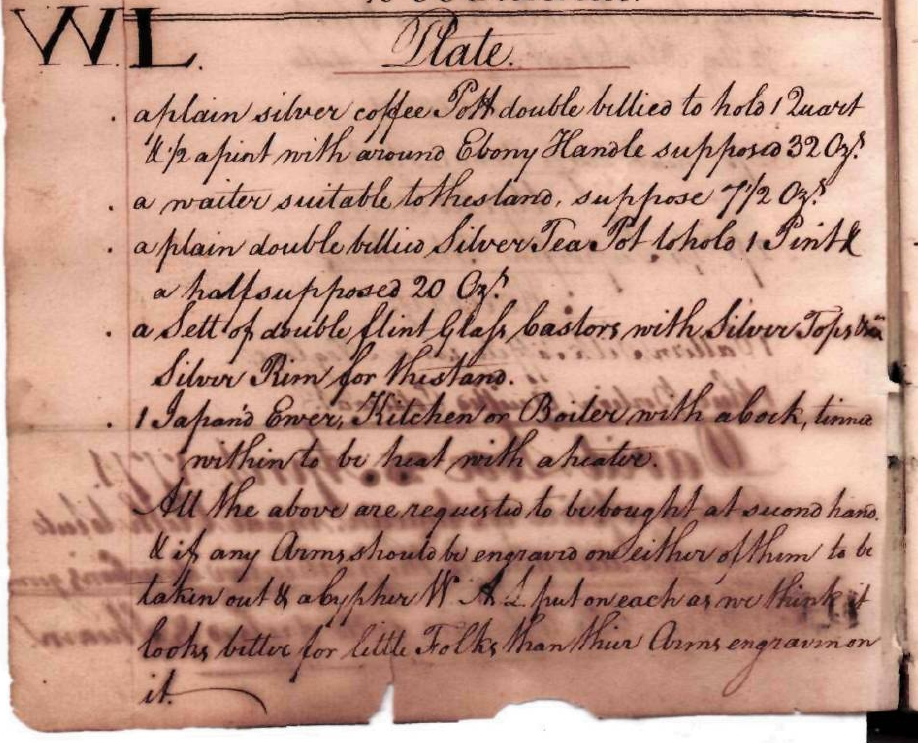 W.L. Plate.
. a plain silver coffee Pott double billied to hold 1 Quart
& 1/2 a pint with a round Ebony Handle supposed 32 Ozs.
. a waiter suitable to the stand, suppose 7 1/2 Ozs.
. a plain double billied Silver Tea Pot to hold 1 Pint &
a half supposed 20 Ozs.
. a Sett of double flint Glass Castors with Silver Tops
Silver Rim for the stand.
. 1 Japan'd Ewer, Kitchen or Boiler with a Cock, tinned
within to be heat with a heater.
All the above are requested to be bought at second hand.
& if any Arms should be engraved on either of them to be
taken out & a Cypher W A L put on each as we think it
looks better for little Folks than thier Arms engraven on
it.